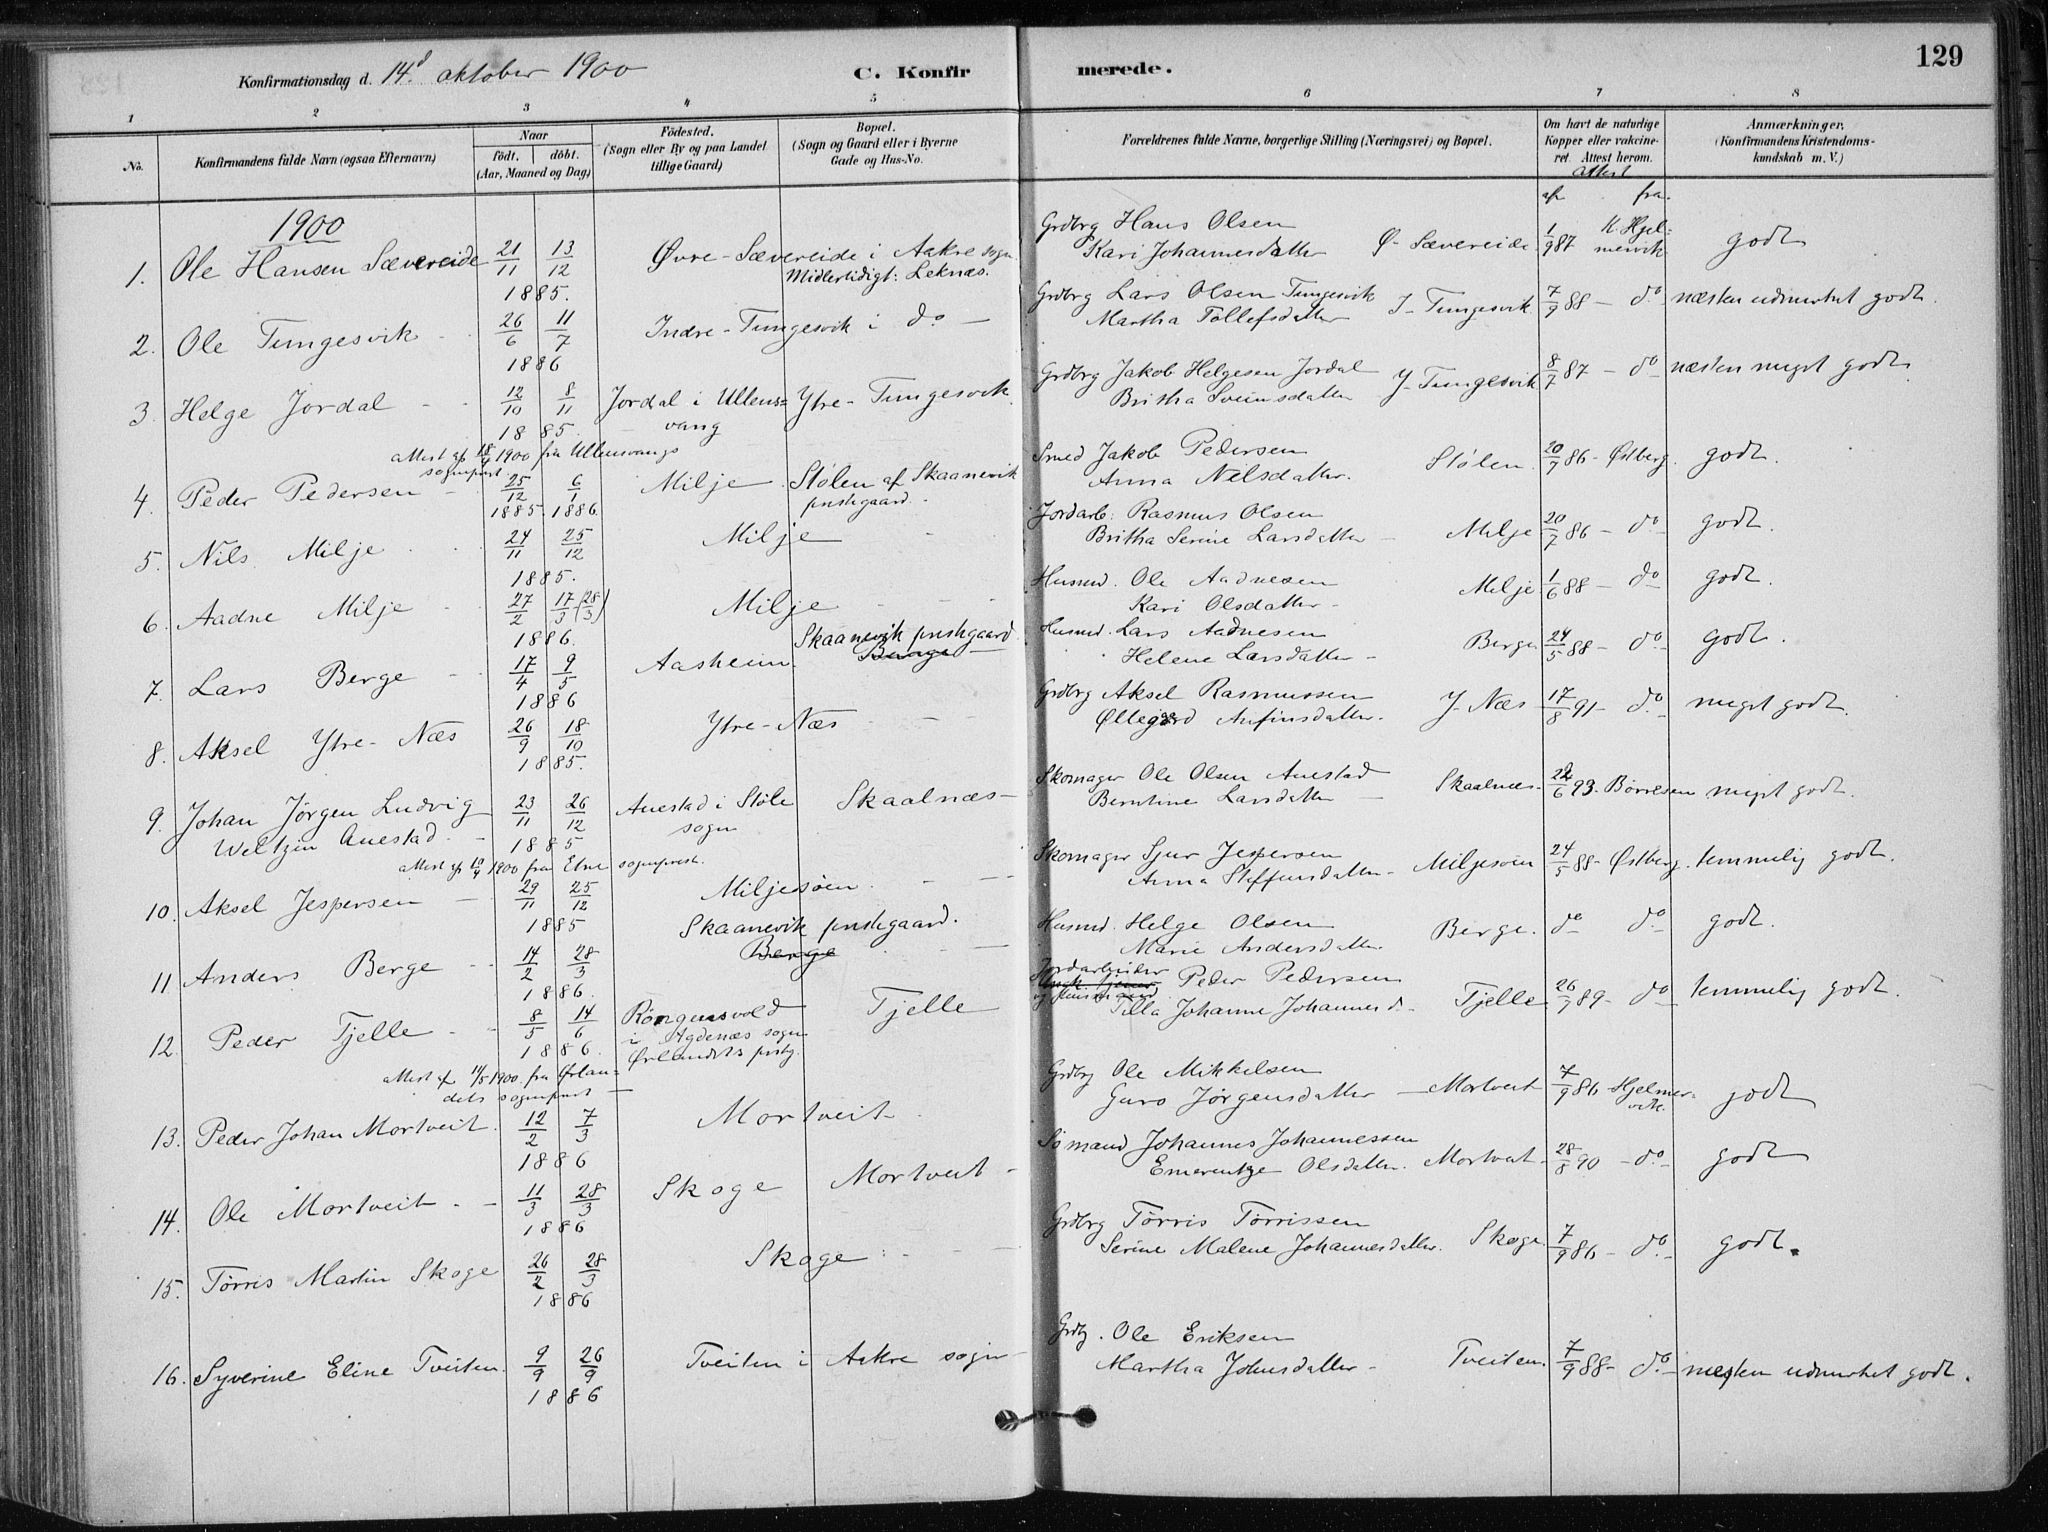 Konfirmationsdag d. 14d oktober 1900 C. Konfirmerede. 129
1 2 3 4 5 6 7 8
No. Konfirmandens fulde Navn (ogsaa Efternavn) Naar födt. döbt. (Aar, Maaned og Dag) Födested. (Sogn eller By og paa Landet tillige Gaard) Bopæl. (Sogn og Gaard eller i Byerne Gade og Hus-No. Forældrenes fulde Navne, borgerlige Stilling (Næringsvei) og Bopæl. Om havt de naturlige Kopper eller vakcineret. Attest herom. Anmærkninger, (Konfirmandens Kristendomskundskab m. V.)
attest
af fra
1900
1. Ole Hansen Sævereide 21/11 13/12 1885. Øvre-Sævereide i Aakre sogn Midlertidigt: Leknæs. Grdbrg Hans Olsen
Kari Johannesdatter Ø-Sævereide 1/9 87 K. Hjelmervik godt
2. Ole Tungesvik 26/6 11/7 1886 Indre-Tungesvik i do - Grdbrg Lars Olsen Tungesvik
Martha Tollefsdatter I-Tungesvik 7/9 88 - do næsten udmerket godt.
3. Helge Jordal - - 12/10 8/11 1885. Jordal i Ullensvang Ytre-Tungesvik. Grdbrg Jakob Helgesen Jordal
Britha Sveinsdatter Y-Tungesvik 8/7 87 - do næsten meget godt
attest af 18/4 1900 fra Ullensvangs
sogneprest
4. Peder Pedersen - 25/12 1885. 6/1 1886. Milje Stølen af Skaanevik prestegaard. Smed Jakob Pedersen
Anna Nilsdatter. Stølen. 20/7 86 - Østberg. godt.
5. Nils Milje 24/11 25/12 1885. Milje - Jordarb: Rasmus Olsen
Britha Serine Larsdatter - Milje 20/7 86 - do godt.
6. Aadne Milje 27/2 17/3 (28/3) 1886. Milje - - Husmd. Ole Aadnesen
Kari Olsdatter - Milje 1/6 88 - do godt.
7. Lars Berge 17/4 9/5 1886 Aasheim Skaanevik prestegaard Berge Husmd. Lars Aadnesen
Helene Larsdatter - Berge 24/5 88 - do godt.
8. Aksel Ytre-Næs 26/9 18/10 1885. Ytre-Næs - - Grdbrg Aksel Rasmussen
Øllegaard Anfinsdatter. Y-Næs - 17/8 91 - do meget godt.
9. Johan Jörgen Ludvig
Weltzin Auestad - 23/11 26/12 1885 Auestad i Støle sogn Skaalnæs - Skomager Ole Olsen Auestad
Berntine Larsdatter Skaalnæs - 22/6 93 - Børresen meget godt.
attest af 10/4 1900 fra Etne sogneprest.
10. Aksel Jespersen - 29/11 25/12 1885 Miljesøen - - Skomager Sjur Jespersen
Anna Steffensdatter - Miljesøen 24/5 88 - Østberg. temmelig godt.
11 Anders Berge - - 14/2 28/3 1886. Skaanevik prestegaard. Berge Husmd. Helge Olsen
Marie Andersdatter Berge. do do godt.
12. Peder Tjelle - - 8/5 14/6 1886. Röngensvold i Agdenæs sogn Ørlandets prstg. Tjelle Jordarbeider og Husmand Peder Pedersen
Pella Johanne Johannesd. Tjelle 26/9 89 - do temmelig godt.
attest af 11/5 1900. fra Ørlandets sogneprest -
13. Peder Johan Mortveit. 12/2 7/3 1886 Mortveit Grdbrg Ole Mikkelsen
Guro Jørgensdatter - Mortveit 7/9 86 - Hjelmervik. godt
14. Ole Mortveit - - 11/3 28/3 1886 Skoge Mortveit - Sømand Johannes Johannessen
Emerentze Olsdatter. Mortveit - 28/8 90 - do - godt
15. Tørris Martin Skoge 26/2 28/3 1886 Skoge - Grdbrg Tørris Tørrissen
Serine Malene Johannesdatter. Skoge. 7/9 86 - do - godt.
16. Syverine Eline Tveiten. 9/9 26/9 1886 Tveiten i Aakre sogn - Grdbrg. Ole Eriksen
Martha Johnsdatter - Tveiten. 7/9 88 - do næsten udmerket godt.